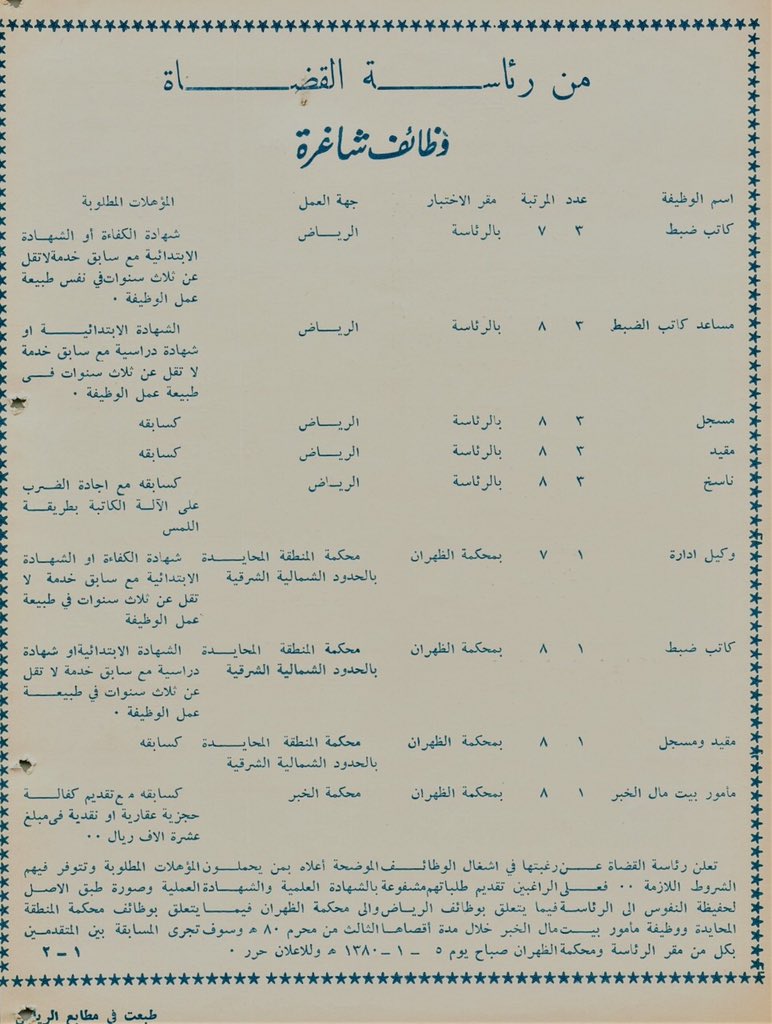 من رئاســـة القضـــاة
وظائف شاغرة
اسم الوظيفة عدد المرتبة مقر الاختبار جهة العمل المؤهلات المطلوبة
كاتب ضبط ٣ ٧ بالرئاسة الريــاض شهادة الكفاءة أو الشهـادة
الابتدائية مع سابق خدمة لاتقل
عن ثلاث سنوات في نفس طبيعة
عمل الوظيفة .
مساعد كاتب الضبط ٣ ٨ بالرئاسة الريــاض الشهادة الابتدائيــة او
شهادة دراسية مع سابق خدمة
لا تقل عن ثلاث سنوات فــى
طبيعة عمل الوظيفة .
مسجل ٣ ٨ بالرئاسة الريــاض كسابقه
مقيد ٣ ٨ بالرئاسة الريــاض كسابقه
ناسخ ٣ ٨ بالرئاسة الريــاض كسابقه مع اجادة الضرب
على الآلــة الكاتبة بطريقــة
اللمس
وكيل ادارة ١ ٧ بمحكمة الظهران محكمة المنطقة المحايــدة شهادة الكفاءة او الشهادة
بالحدود الشمالية الشرقية الابتدائية مع سابق خدمة لا
تقل عن ثلاث سنوات في طبيعة
عمل الوظيفة
كاتب ضبط ١ ٨ بمحكمة الظهران محكمة المنطقة المحايــدة الشهادة الابتدائية او شهادة
بالحدود الشمالية الشرقية دراسية مع سابق خدمة لا تقل
عن ثلاث سنوات في طبيعــة
عمل الوظيفة .
مقيد ومسجل ١ ٨ بمحكمة الظهران محكمة المنطقة المحايــدة كسابقه
بالحدود الشمالية الشرقية
مامور بيت مال الخبر ١ ٨ بمحكمة الظهران محكمة الخبر كسابقه مع تقديم كفالــة
حجزية عقارية او نقدية فى مبلغ
عشرة الاف ريال ..
تعلن رئاسة القضاة عــن رغبتها في اشغال الوظائــف الموضحة أعلاه بمن يحملــون المؤهلات المطلوبة وتتوفر فيهم
الشروط اللازمة .. فعــلى الراغبين تقديم طلباتهم مشفوعة بالشهادة العلمية والشهــادة العملية وصورة طبق الاصل
لحفيظة النفوس الى الرئاسة فيما يتعلق بوظائف الرياض والى محكمة الظهران فيمــا يتعلق بوظائف محكمة المنطقة
المحايدة ووظيفة مامور بيــت مال الخبر خلال مدة أقصاها الثالث من محرم ٨٠ هـ وسوف تجرى المسابقة بين المتقدمــين
بكل من مقر الرئاسة ومحكمة الظهران صباح يوم ٥ - ١ - ١٣٨٠ هـ وللاعلان حرر . ١ - ٢
طبعت في مطابع الرياض